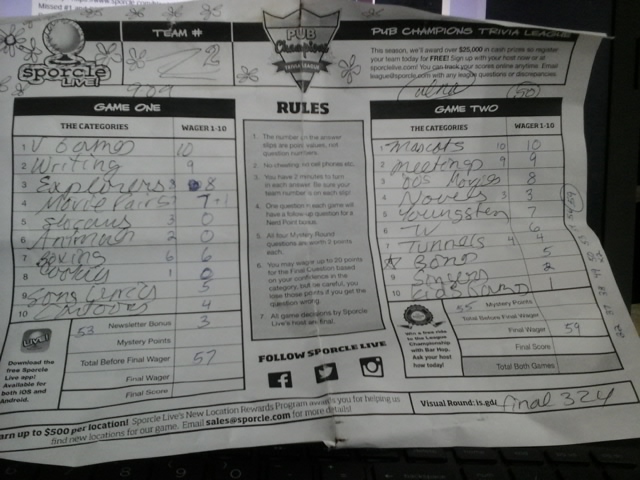 Missed #1
TEAM #
22
sporcle LIVE!
PUB Champions TRIVIA LEAGUE
PUB CHAMPIONS TRIVIA LEAGUE
This season, we'll award over $25,000 in cash prizes so register
your team today for FREE! Sign up with your host now or at
sporclelive.com! You can track your scores online anytime. Email
league@sporcle.com with any league questions or discrepancies.
909
GAME ONE
THE CATEGORIES WAGER 1-10
1 V Games 10
2 Writing 9
3 Explorers 3 8
4 Movie Pairs 7 +1
5 Slogans 3 0
6 Animals 2 0
7 Boxing 6 6
8 1 0
9 Song Lyrics 5
10 Cartoons 4
53 Newsletter Bonus 3
Mystery Points
Total Before Final Wager 57
Final Wager
Final Score
LIVE!
Download the
free Sporcle
Live app!
Available for
both iOS and
Android.
RULES
1. The number on the answer
slips are point values, not
question numbers.
2. No cheating, no cell phones etc.
3. You have 2 minutes to turn
in each answer. Be sure your
team number is on each slip!
4. One question in each game
will have a follow-up question for a
Nerd Point bonus.
5. All four Mystery Round
questions are worth 2 points
each.
6. You may wager up to 20 points
for the Final Question based
on your confidence in the
category, but be careful, you
lose those points if you get the
question wrong.
7. All game decisions by Sporcle
Live's host are final.
FOLLOW SPORCLE LIVE
GAME TWO
THE CATEGORIES WAGER 1-10
1 Mascots 10 10
2 Meetings 9 9
3 00s Movies 8
4 Novels 3 3
5 Youngsters 7
6 TV 6
7 Tunnels 4 4
8 Bond 5
9 2
10 1
55 Mystery Points
Total Before Final Wager
Final Wager 59
Final Score
Total Both Games
Win a free ride
to the League
Championship
with Bar Hop.
Ask your host
how today!
Earn up to $500 per location! Sporcle Live's New Location Rewards Program awards you for helping us
find new locations for our game. Email sales@sporcle.com for more details!
Visual Round: is.gd/
final 324